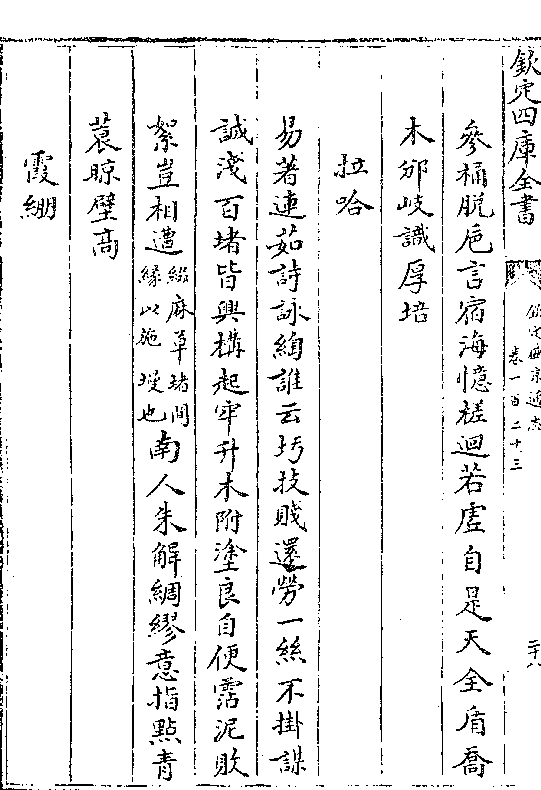 欽定四庫全書
欽定盛京通志
卷一百二十三
二十八
參桶脫巵言宿海憶槎迴若虛自是天全盾喬
木邠岐識厚培
拉哈
易著連茹詩詠綯誰云圬技賤還勞一絲不掛謀
誠淺百堵皆興構起牢升木附塗良自便霑泥敗
絮豈相遭綴麻草堵間緣以施墁也南人朱解綢繆意指點青
蓑晾壁高
霞綳